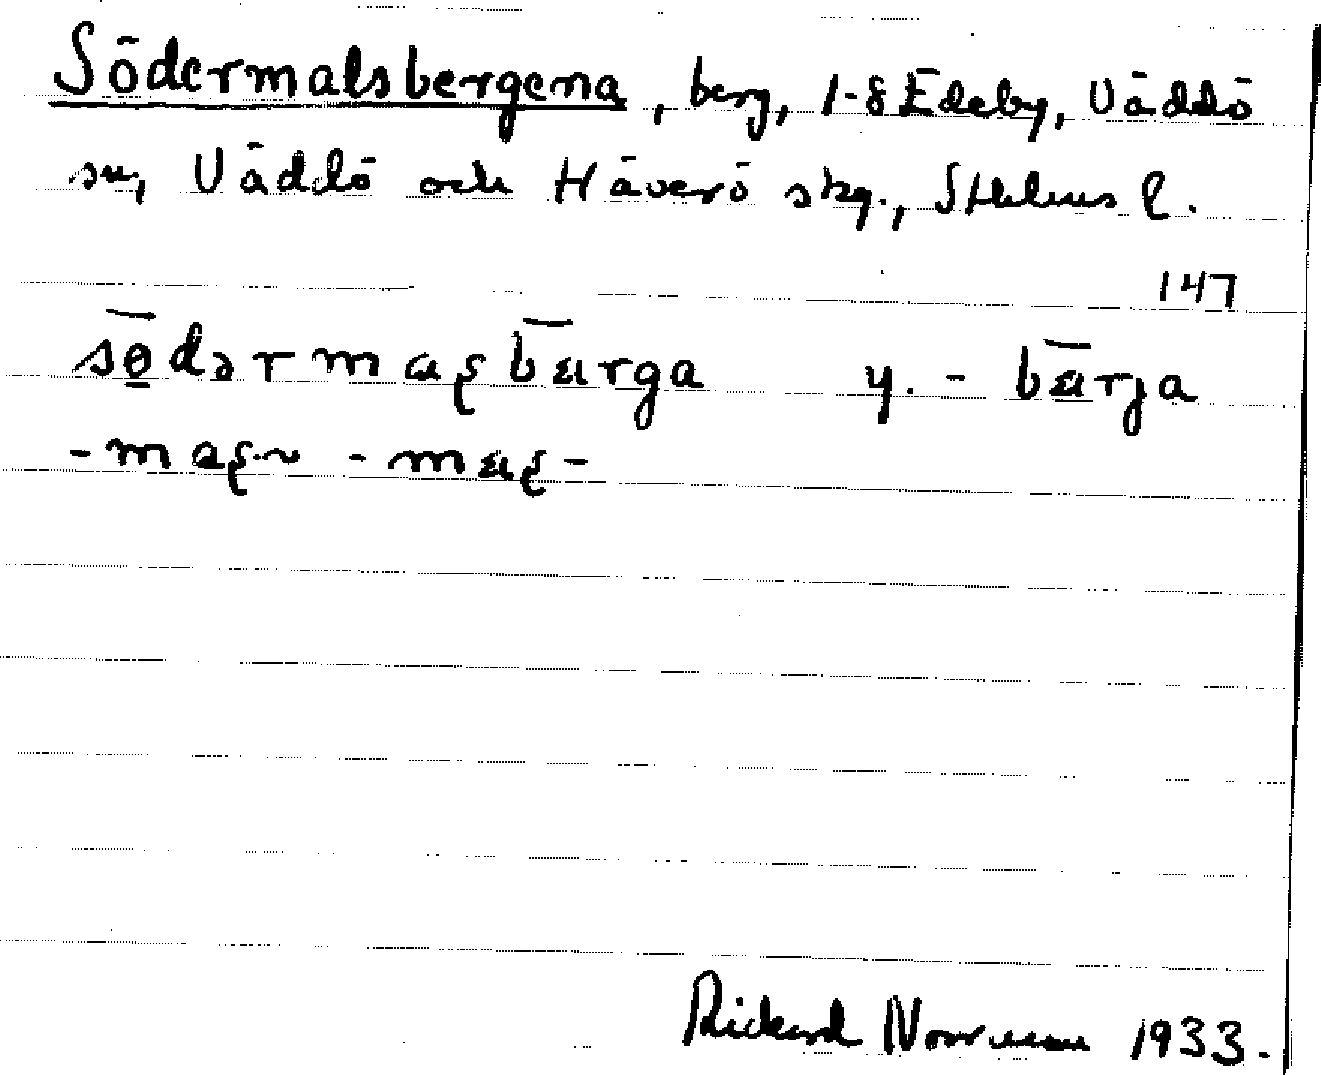 Södermalsbergena, berg, 1-8 Edeby, Väddö
sn, Väddö och Häverö skg., Sthlms l.
147
södərmaɽbærga y. - bærja
-maɽ- ~ -mæɽ-
Rickard Norrman 1933.